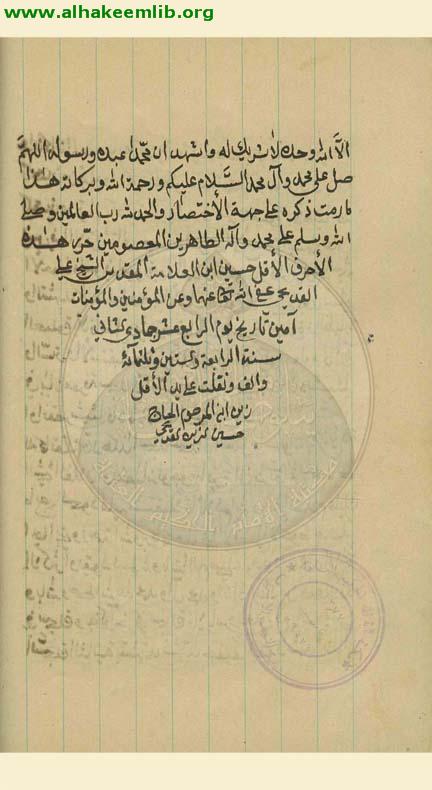 www.alhakeemlib.org
الا الله وحده لا شريك له واشهد ان محمدا عبده ورسوله اللهم
صل على محمد وآل محمد السلام عليكم ورحمة الله وبركاته هذا
ما رمت ذكره على جهة الأختصار والحمد لله رب العالمين وصلى
الله وسلم على محمد وآله الطاهرين المعصومين حرر هذه
الأحرف الأقل حسين ابن العلامة المقدس الشيخ علي
القديحي عفى الله تعالى عنهما وعن المؤمنين والمؤمنات
آمين بتاريخ يوم الرابع عشر جمادى الثاني
سنة الرابعة والستين وثلثمائة
والف ونقلت على يد الأقل
ابن المرحوم الحاج
حسين القديحي